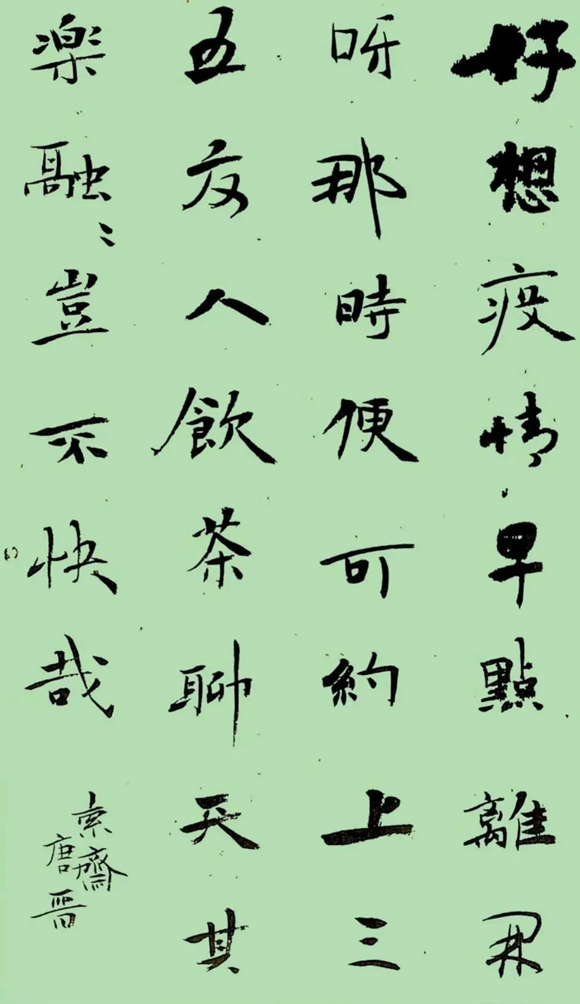 好想疫情早點離開
呀那時便可約上三
五友人飲茶聊天其
楽融〻豈不快哉
索齋
唐晋